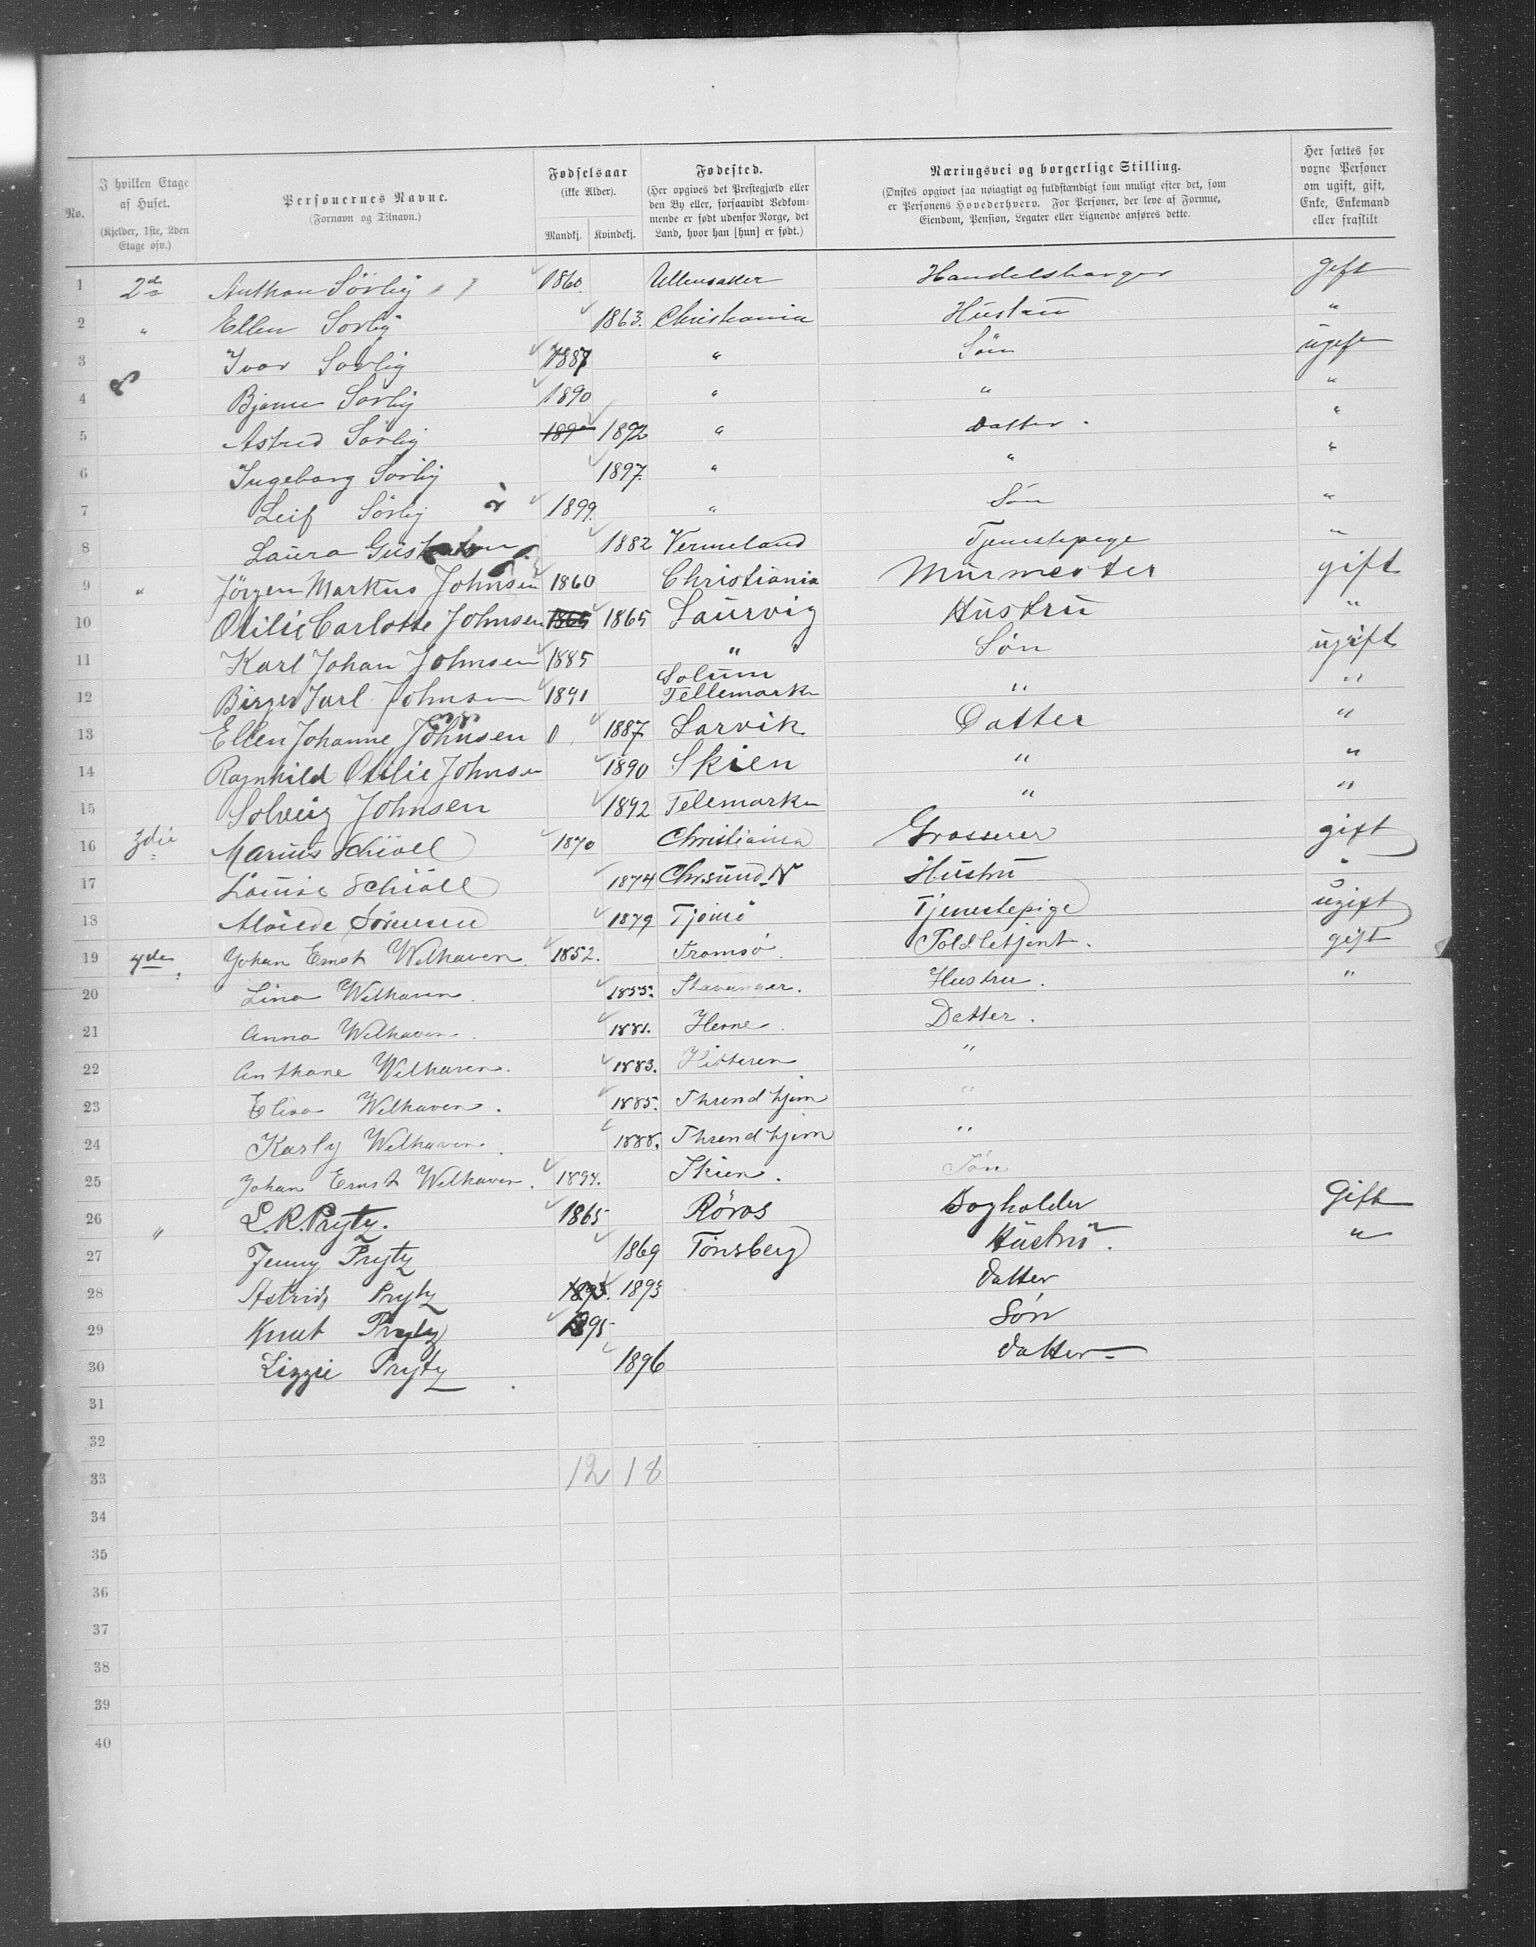 No.
I hvilken Etage af Huset. (Kjelder, 1ste, 2den Etage osv.)
Personernes Navne. (Fornavn og Tilnavn.)
Fødselsaar (ikke Alder). Mandkj. Kvindekj.
Fødested. (Her opgives det Prestegjæld eller den By eller, forsaavidt Vedkommende er født udenfor Norge, det Land, hvor han [hun] er født.)
Næringsvei og borgerlige Stilling. (Ønskes opgivet saa nøiagtigt og fuldstændigt som muligt efter det, som er Personens Hovederhverv. For Personer, der leve af Formue, Eiendom, Pension, Legater eller Lignende anføres dette.)
Her sættes for voxne Personer om ugift, gift, Enke, Enkemand eller fraskilt
1 2den Anthon Sörby 1860 Ullensaker Handelsborger gift
2 " Ellen Sorby 1863. Christiania Hustru "
3 Ivar Sorby 1887 " Sön ugift
4 Bjarne Sorby 1890 " " "
5 Astrid Sörby 1892 " Datter. "
6 Ingeborg Sörby 1897. " " "
7 Leif Sörby 1899. " Sön "
8 Laura 1882 Vermeland Tjenestepige "
9 " Jörgen Markus Johnsen 1860 Christiania Murmester gift
10 Otilie Carlotte Johnsen 1865 1865 Laurvig Hustru "
11 Karl Johan Johnsen 1885 " Søn ugift
12 Birger Jarl Johnsen 1891 Solum Tellemarken " "
13 Ellen Johanne Johnsen 0 1887 Larvik Datter "
14 Ragnhild Otilie Johnsen 1890 Skien " "
15 Solveig Johnsen 1892 Telemarken " "
16 3die Marius Schiøll 1870 Christiania Grosserer gift
17 Louise Schiøll 1874 Chrsund. N Hustru "
18 Sørensen 1879 Tjømö Tjenestepige ugift
19 4de Johan Ernst Welhaven. 1852. Tromsø. Toldbetjent. gift
20 Lina Welhaven. 1855. Stavanger. Hustru. "
21 Anna Welhaven. 1881. Hevne. Datter.
22 Anthone Welhaven. 1883. Hitteren "
23 Elisa Welhaven. 1885. Threndhjem "
24 Karly Welhaven. 1888. Threndhjem "
25 Johan Ernst Welhaven. 1894. Skien. Søn
26 " L. R. Prytz. 1865 Røros Bogholder Gift
27 Jenny Prytz 1869 Tønsberg Hustru. "
28 Astrid Prytz 1893. 1893 Datter
29 Knut Prytz 1895 Søn
30 Lizzie Prytz. 1896 Datter
31
32
33 12 18
34
35
36
37
38
39
40